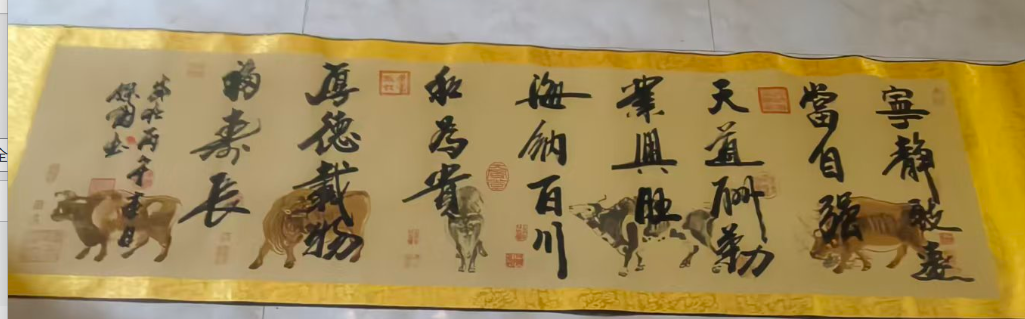 寧靜致遠
當自强
天道酬勤
業興旺
海納百川
和為貴
厚德載物
福壽長
丙午春日